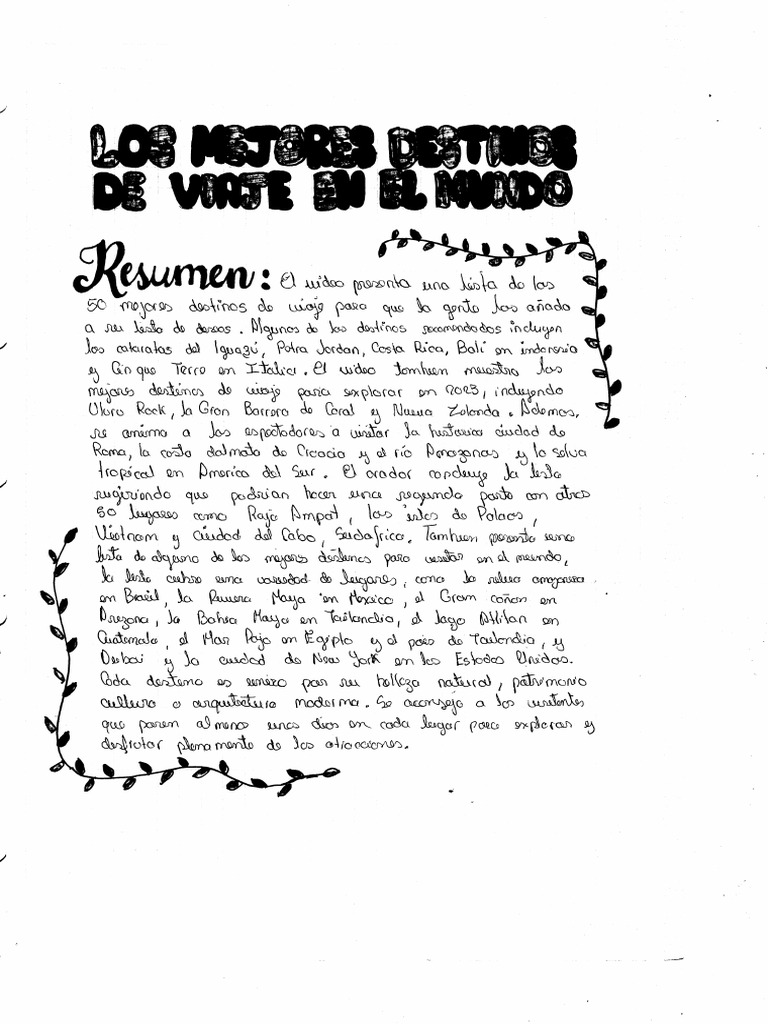 LOS MEJORES DESTINOS
DE VIAJE EN EL MUNDO
Resumen: El video presenta una lista de los
50 mejores destinos de viaje para que la gente los añada
a su lista de deseos. Algunos de los destinos recomendados incluyen
las cataratas del Iguazú, Petra Jordan, Costa Rica, Bali en indonesia
y Cinque Terre en Italia. El video tambien muestra los
mejores destinos de viaje para explorar en 2023, incluyendo
Uluru Rock, la Gran Barrera de Coral y Nueva Zelanda. Ademas,
se anima a los espectadores a visitar la historica ciudad de
Roma, la costa dalmata de Croacia y el río Amazonas y la selva
tropical en America del Sur. El orador concluye la lista
sugiriendo que podrian hacer una segunda parte con otros
50 lugares como Raja Ampat, las islas de Palaos,
Vietnam y Ciudad del Cabo, Sudafrica. Tambien presenta una
lista de alguno de los mejores destinos para visitar en el mundo,
la lista cubre una variedad de lugares, como la selva amazonica
en Brasil, la Riviera Maya en Mexico, el Gran cañon en
Arizona, la Bahia Maya en Tailandia, el lago Atitlan en
Guatemala, el Mar Rojo en Egipto y el país de Tailandia, y
Dubai y la ciudad de New York en los Estados Unidos.
Cada destino es unico por su belleza natural, patrimonio
cultura o arquitectura moderna. Se aconseja a los visitantes
que pasen al menos unos dias en cada lugar para explorar y
disfrutar plenamente de las atracciones.